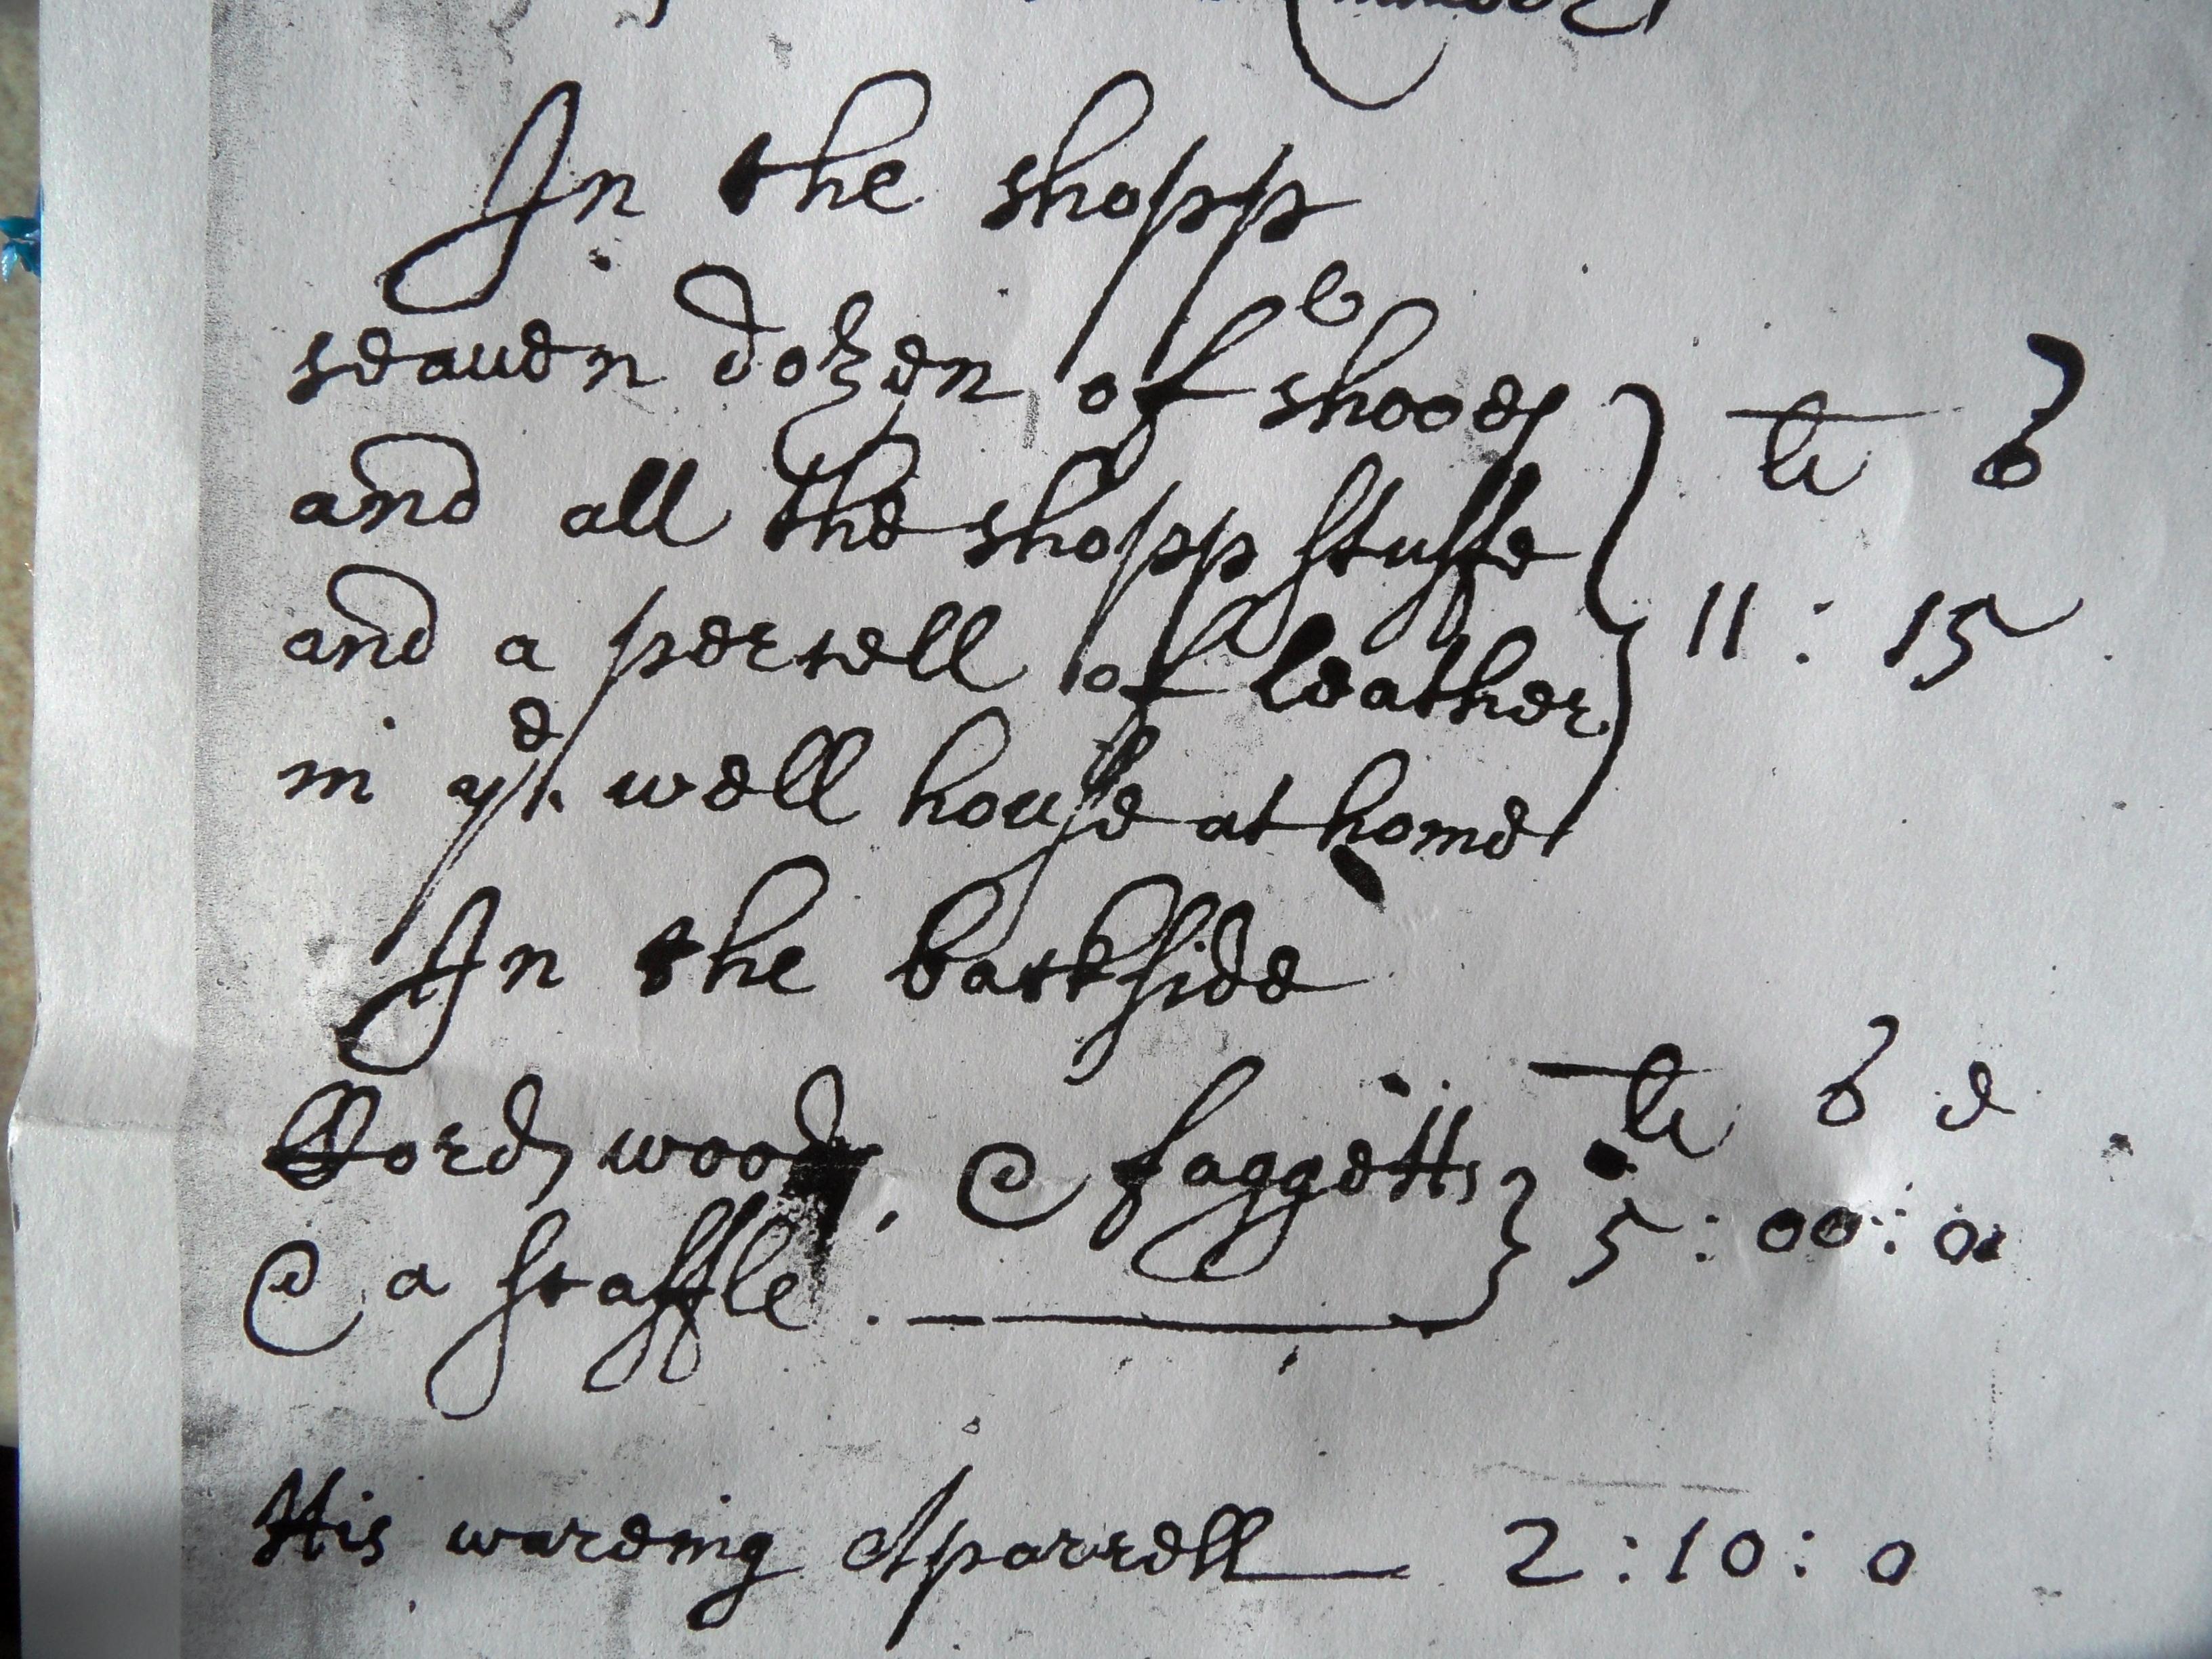 In the shopp
seauen dozen of shooes
and all the shopp stuffe li s
and a persell of leather 11 : 15
in ye well house at home
In the backside
wood, & faggetts li s d
& a staffle . 5 : 00 : 0
His wareing Aparrell 2 : 10 : 0